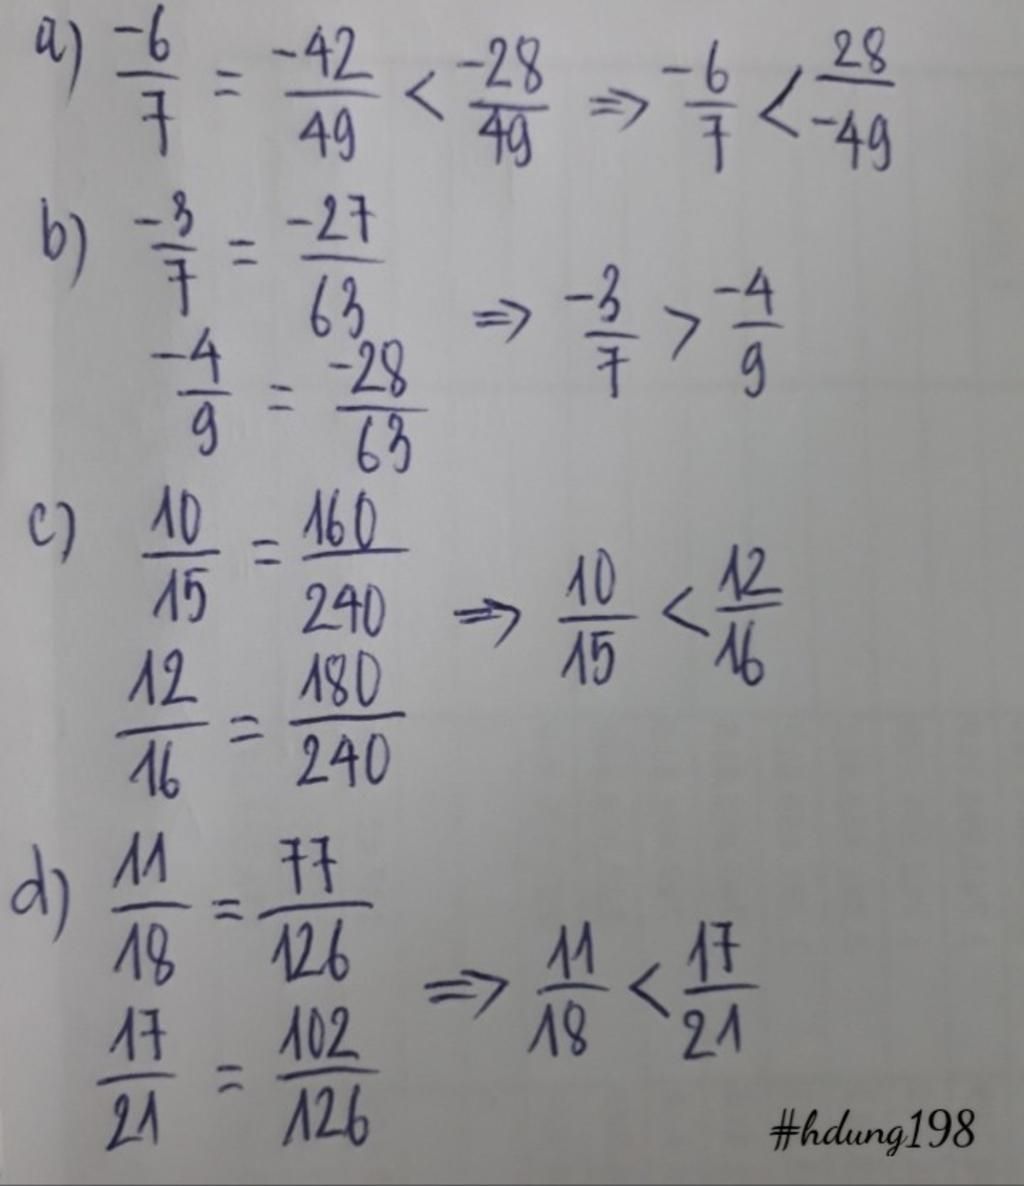 a) -6/7 = -42/49 < -28/49 ⇒ -6/7 < 28/-49
b) -3/7 = -27/63
-4/9 = -28/63
⇒ -3/7 > -4/9
c) 10/15 = 160/240
12/16 = 180/240
⇒ 10/15 < 12/16
d) 11/18 = 77/126
17/21 = 102/126
⇒ 11/18 < 17/21
#hdung198